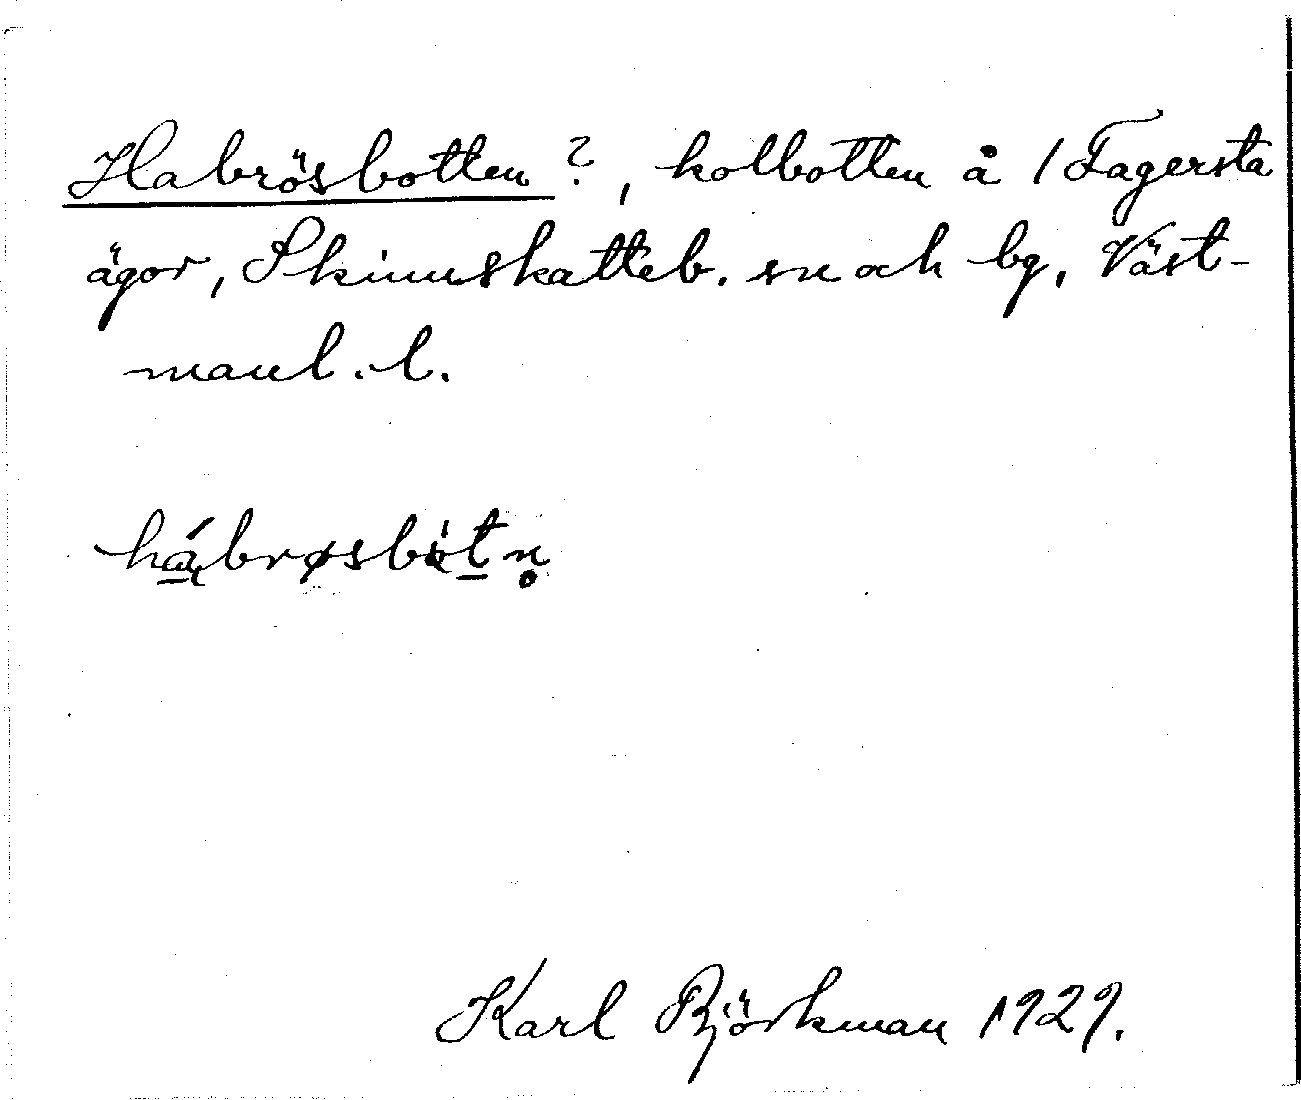 Habrösbotten?, kolbotten å / Fagersta
ägor, Skinnskatteb. sn och bg, Väst-
manl. l.
hábrøsbòtn̥
Karl Björkman 1929.